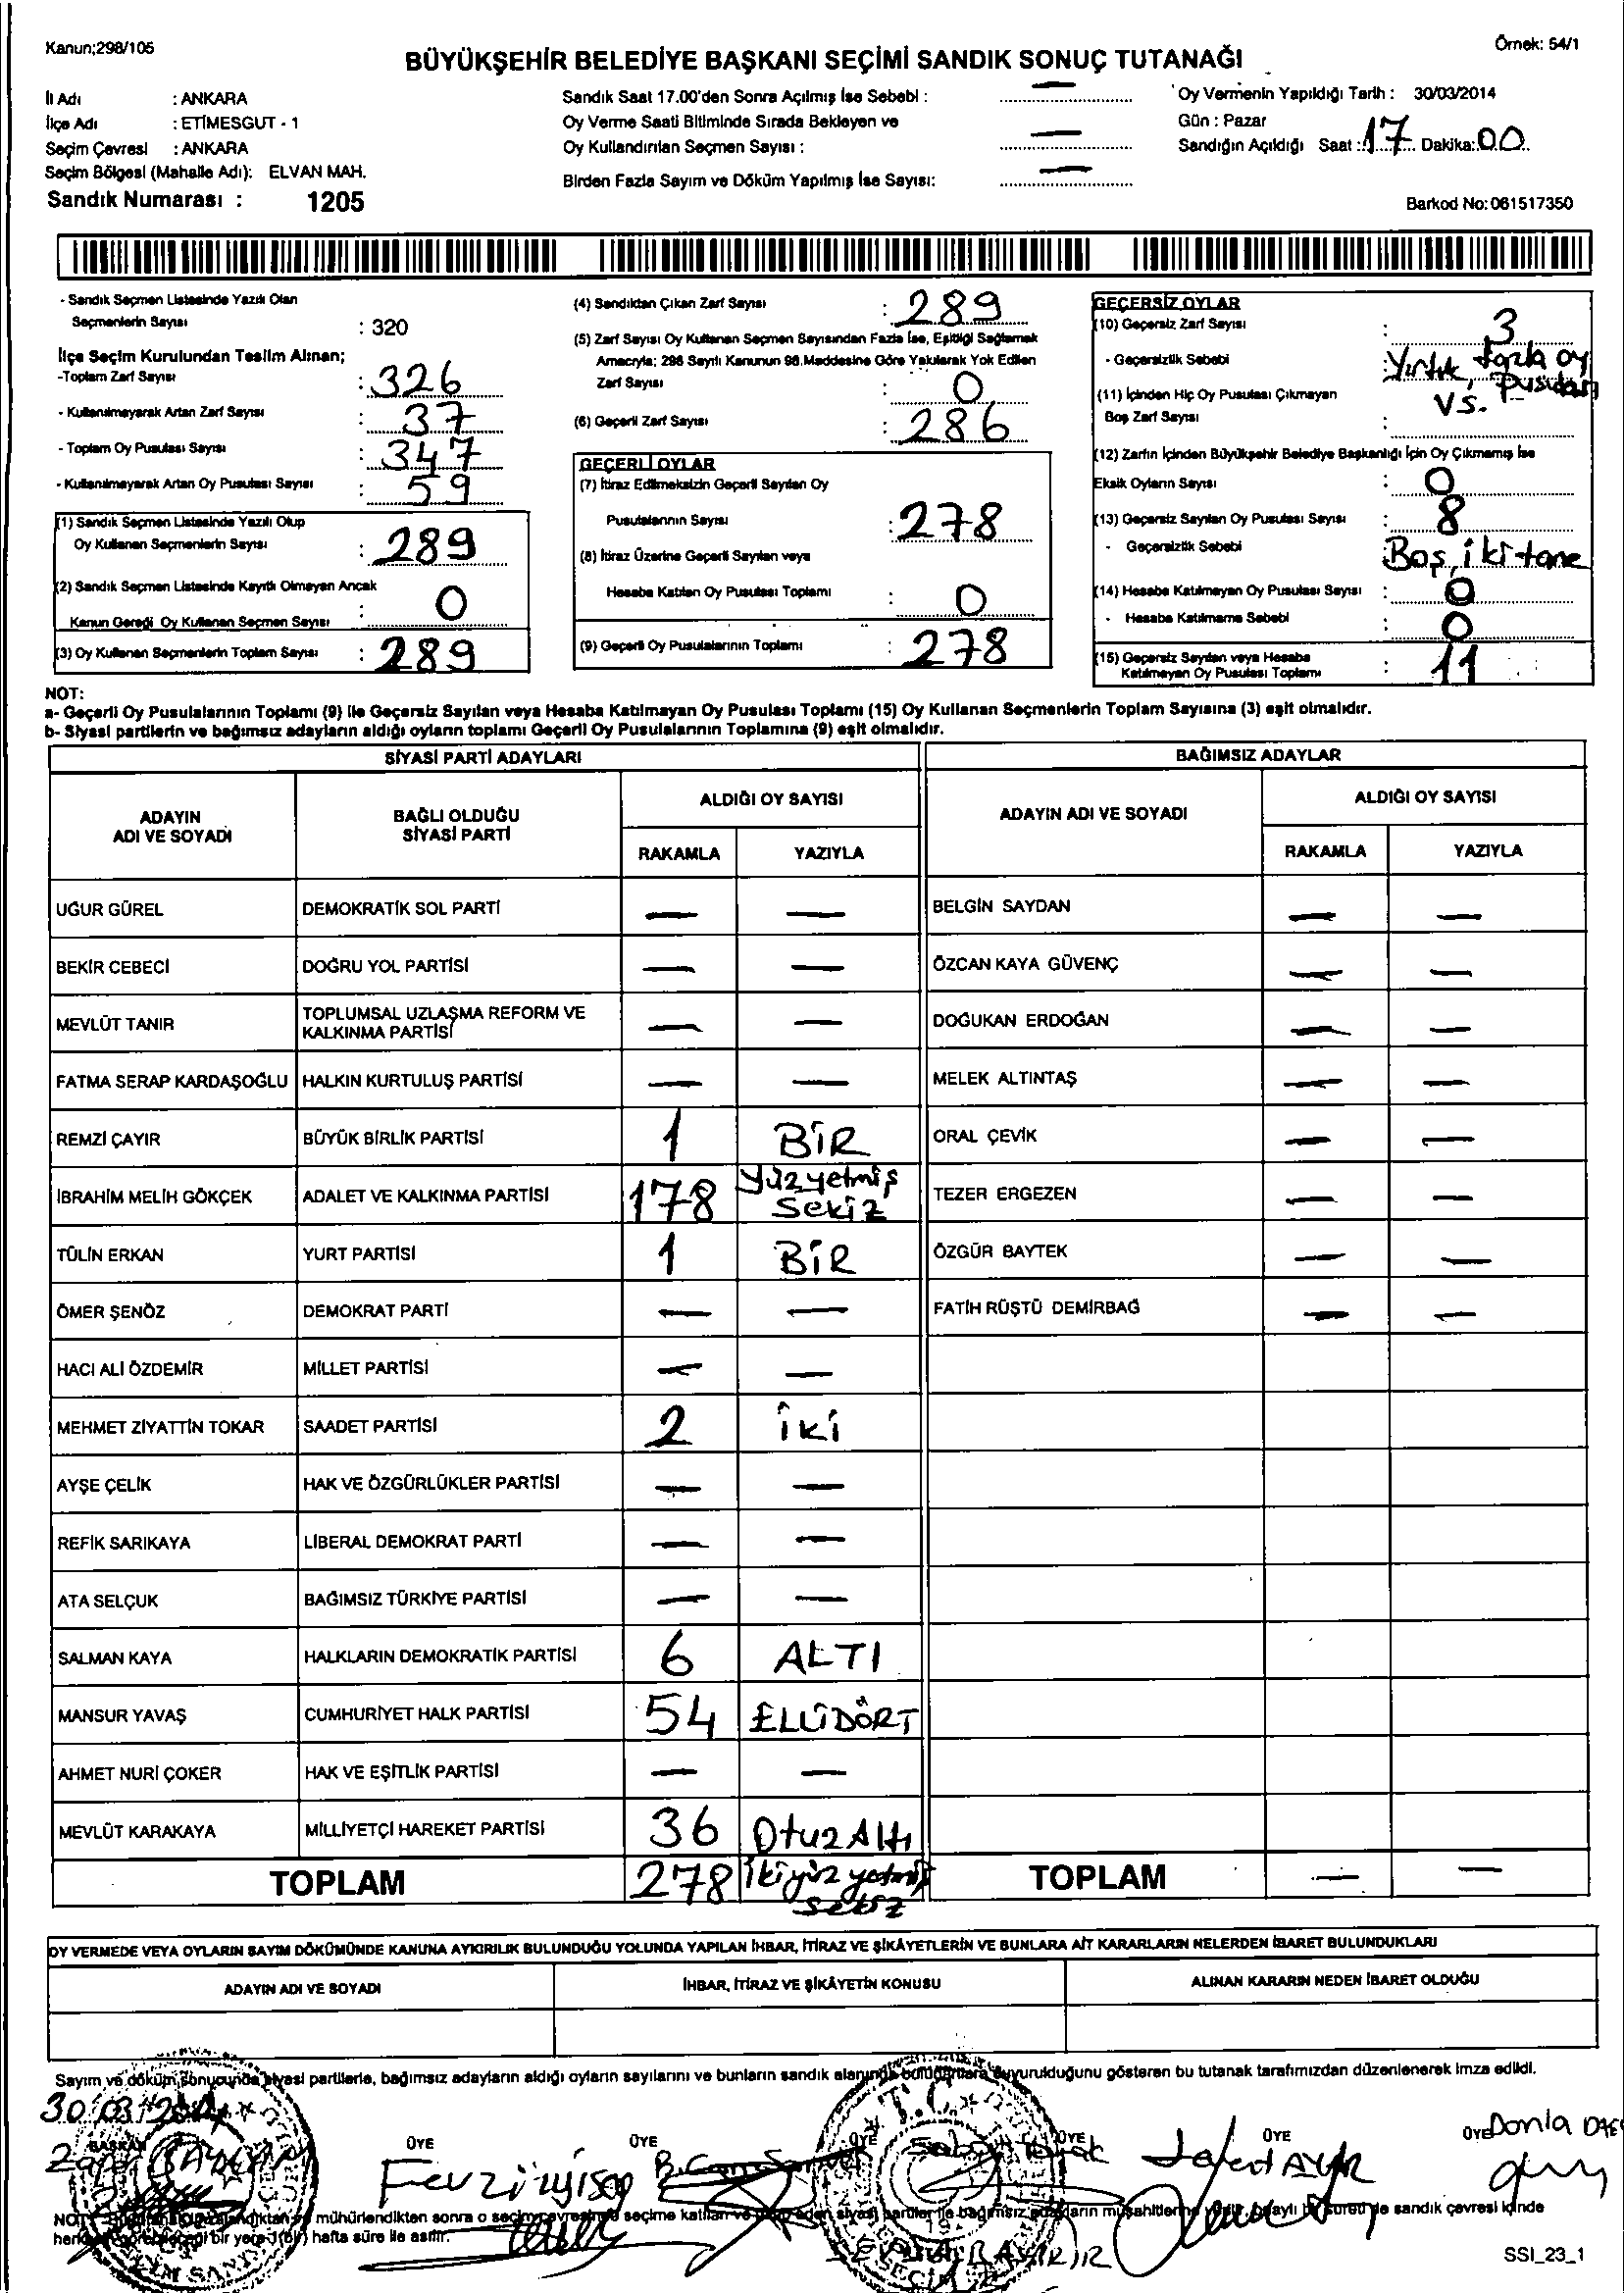 Kanun;298/105
Örnek: 54/1
BÜYÜKŞEHİR BELEDİYE BAŞKANI SEÇİMİ SANDIK SONUÇ TUTANAĞI
İl Adı : ANKARA
İlçe Adı : ETİMESGUT - 1
Seçim Çevresi : ANKARA
Seçim Bölgesi (Mahalle Adı): ELVAN MAH.
Sandık Numarası : 1205
Sandık Saat 17.00'den Sonra Açılmış İse Sebebi : —
Oy Verme Saati Bitiminde Sırada Bekleyen ve
Oy Kullandırılan Seçmen Sayısı : —
Birden Fazla Sayım ve Döküm Yapılmış İse Sayısı: —
Oy Vermenin Yapıldığı Tarih : 30/03/2014
Gün : Pazar
Sandığın Açıldığı Saat : 17 Dakika: 00
Barkod No: 061517350
- Sandık Seçmen Listesinde Yazılı Olan
Seçmenlerin Sayısı : 320
İlçe Seçim Kurulundan Teslim Alınan;
-Toplam Zarf Sayısı : 326
- Kullanılmayarak Artan Zarf Sayısı : 37
- Toplam Oy Pusulası Sayısı : 347
- Kullanılmayarak Artan Oy Pusulası Sayısı : 59
(1) Sandık Seçmen Listesinde Yazılı Olup
Oy Kullanan Seçmenlerin Sayısı : 289
(2) Sandık Seçmen Listesinde Kayıtlı Olmayan Ancak
Kanun Gereği Oy Kullanan Seçmen Sayısı : 0
(3) Oy Kullanan Seçmenlerin Toplam Sayısı : 289
(4) Sandıktan Çıkan Zarf Sayısı : 289
(5) Zarf Sayısı Oy Kullanan Seçmen Sayısından Fazla İse, Eşitliği Sağlamak
Amacıyla; 298 Sayılı Kanunun 98.Maddesine Göre Yakılarak Yok Edilen
Zarf Sayısı : 0
(6) Geçerli Zarf Sayısı : 286
GEÇERLİ OYLAR
(7) İtiraz Edilmeksizin Geçerli Sayılan Oy
Pusulalarının Sayısı : 278
(8) İtiraz Üzerine Geçerli Sayılan veya
Hesaba Katılan Oy Pusulası Toplamı : 0
(9) Geçerli Oy Pusulalarının Toplamı : 278
GEÇERSİZ OYLAR
(10) Geçersiz Zarf Sayısı : 3
- Geçersizlik Sebebi : Yırtık, fazla oy
Pusulası
vs.
(11) İçinden Hiç Oy Pusulası Çıkmayan
Boş Zarf Sayısı :
(12) Zarfın İçinden Büyükşehir Belediye Başkanlığı İçin Oy Çıkmamış İse
Eksik Oyların Sayısı : 0
(13) Geçersiz Sayılan Oy Pusulası Sayısı : 8
- Geçersizlik Sebebi : Boş, iki tane
(14) Hesaba Katılmayan Oy Pusulası Sayısı : 0
- Hesaba Katılmama Sebebi : 0
(15) Geçersiz Sayılan veya Hesaba
Katılmayan Oy Pusulası Toplamı : 11
NOT:
a- Geçerli Oy Pusulalarının Toplamı (9) ile Geçersiz Sayılan veya Hesaba Katılmayan Oy Pusulası Toplamı (15) Oy Kullanan Seçmenlerin Toplam Sayısına (3) eşit olmalıdır.
b- Siyasi partilerin ve bağımsız adayların aldığı oyların toplamı Geçerli Oy Pusulalarının Toplamına (9) eşit olmalıdır.
SİYASİ PARTİ ADAYLARI
ADAYIN
ADI VE SOYADI
BAĞLI OLDUĞU
SİYASİ PARTİ
ALDIĞI OY SAYISI
RAKAMLA YAZIYLA
UĞUR GÜREL DEMOKRATİK SOL PARTİ — —
BEKİR CEBECİ DOĞRU YOL PARTİSİ — —
MEVLÜT TANIR TOPLUMSAL UZLAŞMA REFORM VE
KALKINMA PARTİSİ — —
FATMA SERAP KARDAŞOĞLU HALKIN KURTULUŞ PARTİSİ — —
REMZİ ÇAYIR BÜYÜK BİRLİK PARTİSİ 1 BİR
İBRAHİM MELİH GÖKÇEK ADALET VE KALKINMA PARTİSİ 178 Yüzyetmiş
Sekiz
TÜLİN ERKAN YURT PARTİSİ 1 BİR
ÖMER ŞENÖZ DEMOKRAT PARTİ — —
HACI ALİ ÖZDEMİR MİLLET PARTİSİ — —
MEHMET ZİYATTİN TOKAR SAADET PARTİSİ 2 İki
AYŞE ÇELİK HAK VE ÖZGÜRLÜKLER PARTİSİ — —
REFİK SARIKAYA LİBERAL DEMOKRAT PARTİ — —
ATA SELÇUK BAĞIMSIZ TÜRKİYE PARTİSİ — —
SALMAN KAYA HALKLARIN DEMOKRATİK PARTİSİ 6 ALTI
MANSUR YAVAŞ CUMHURİYET HALK PARTİSİ 54 ELLİDÖRT
AHMET NURİ ÇOKER HAK VE EŞİTLİK PARTİSİ — —
MEVLÜT KARAKAYA MİLLİYETÇİ HAREKET PARTİSİ 36 OtuzAltı
TOPLAM 278 İkiyüz yetmiş
sekiz
BAĞIMSIZ ADAYLAR
ADAYIN ADI VE SOYADI
ALDIĞI OY SAYISI
RAKAMLA YAZIYLA
BELGİN SAYDAN — —
ÖZCAN KAYA GÜVENÇ — —
DOĞUKAN ERDOĞAN — —
MELEK ALTINTAŞ — —
ORAL ÇEVİK — —
TEZER ERGEZEN — —
ÖZGÜR BAYTEK — —
FATİH RÜŞTÜ DEMİRBAĞ — —
TOPLAM — —
OY VERMEDE VEYA OYLARIN SAYIM DÖKÜMÜNDE KANUNA AYKIRILIK BULUNDUĞU YOLUNDA YAPILAN İHBAR, İTİRAZ VE ŞİKÂYETLERİN VE BUNLARA AİT KARARLARIN NELERDEN İBARET BULUNDUKLARI
ADAYIN ADI VE SOYADI İHBAR, İTİRAZ VE ŞİKÂYETİN KONUSU ALINAN KARARIN NEDEN İBARET OLDUĞU
Sayım ve döküm sonucunda siyasi partilerle, bağımsız adayların aldığı oyların sayılarını ve bunların sandık alanında duyurulduğunu gösteren bu tutanak tarafımızdan düzenlenerek imza edildi.
30/03/2014
BAŞKAN ÜYE ÜYE ÜYE ÜYE ÜYE ÜYE
Fevzi
Donla
T.C.
NOT: mühürlendikten sonra o seçim çevresinde seçime katılan siyasi partiler ile bağımsız adayların müşahitlerine sandık çevresi içinde
bir yere 1 (bir) hafta süre ile asılır.
SSI_23_1